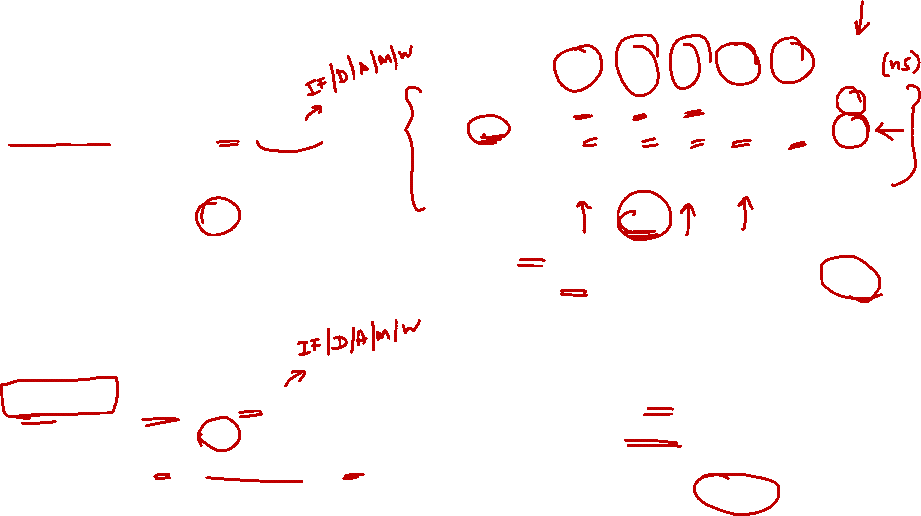 IF/D/A/M/W
(ns)
IF/D/A/M/W